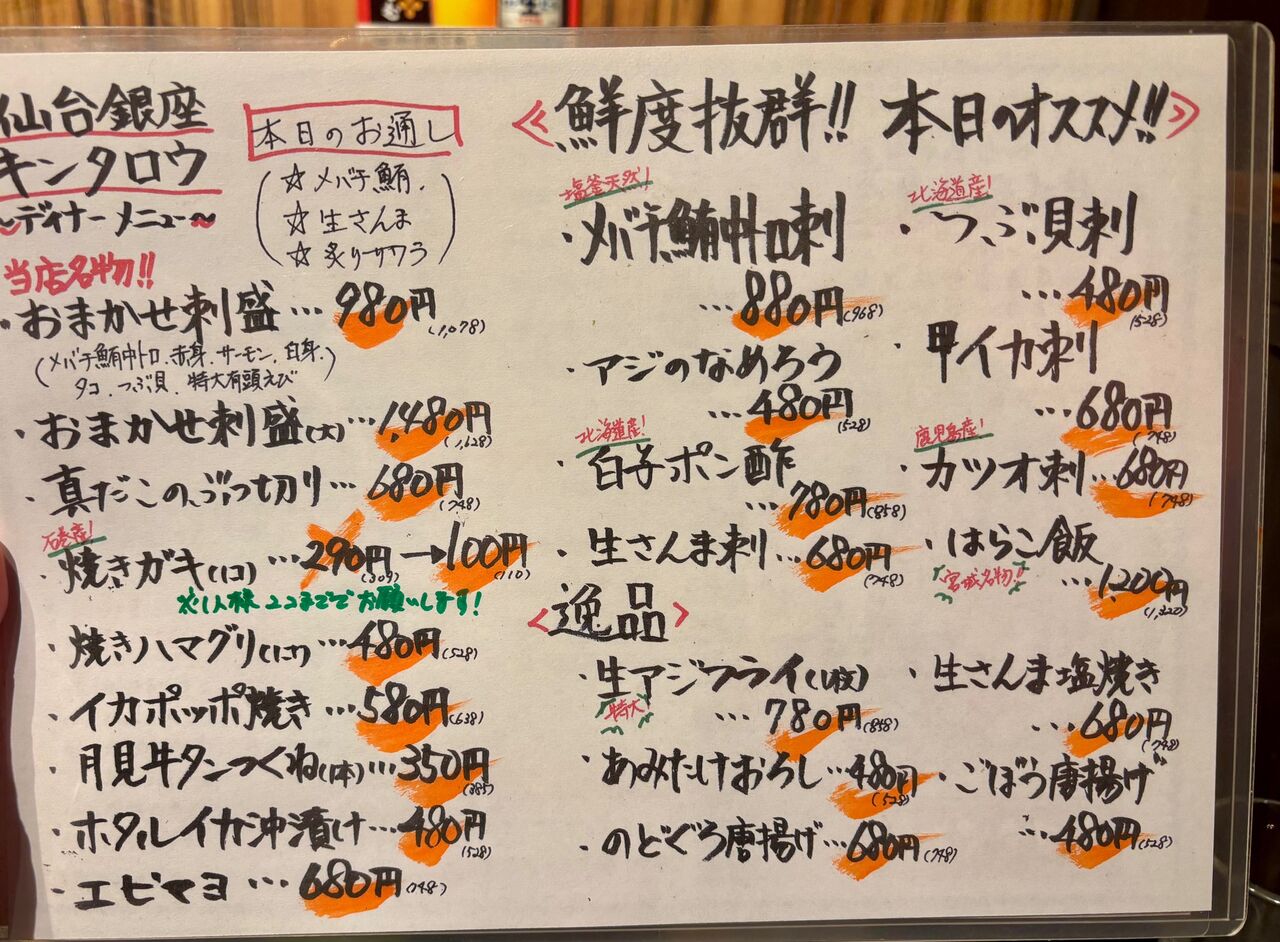 仙台銀座
キンタロウ
~ディナーメニュー~
本日のお通し
☆メバチ鮪
☆生さんま
☆炙りサワラ
当店名物!!
・おまかせ刺盛…980円(1,078)
(メバチ鮪中トロ、赤身、サーモン、白身、
タコ、つぶ貝、特大有頭えび)
・おまかせ刺盛(大)…1,480円(1,628)
・真だこのぶつ切り…680円(748)
石巻産!
・焼きガキ(1コ)…290円(309)→100円(110)
※1人様2コまででお願いします!
・焼きハマグリ(1コ)…480円(528)
・イカポッポ焼き…580円(638)
・月見牛タンつくね(1本)…350円(385)
・ホタルイカ沖漬け…480円(528)
・エビマヨ…680円(748)
《鮮度抜群!! 本日のオススメ!!》
塩釜天然!
・メバチ鮪中トロ刺
…880円(968)
・アジのなめろう
…480円(528)
北海道産!
・白子ポン酢
…780円(858)
・生さんま刺…680円(748)
北海道産!
・つぶ貝刺
…480円(528)
・甲イカ刺
…680円(748)
鹿児島産!
・カツオ刺…680円(748)
・はらこ飯
宮城名物!!
…1,200円(1,320)
<逸品>
・生アジフライ(1枚)
特大
…780円(858)
・あみたけおろし…480円(528)
・のどぐろ唐揚げ…680円(748)
・生さんま塩焼き
…680円(748)
・ごぼう唐揚げ
…480円(528)